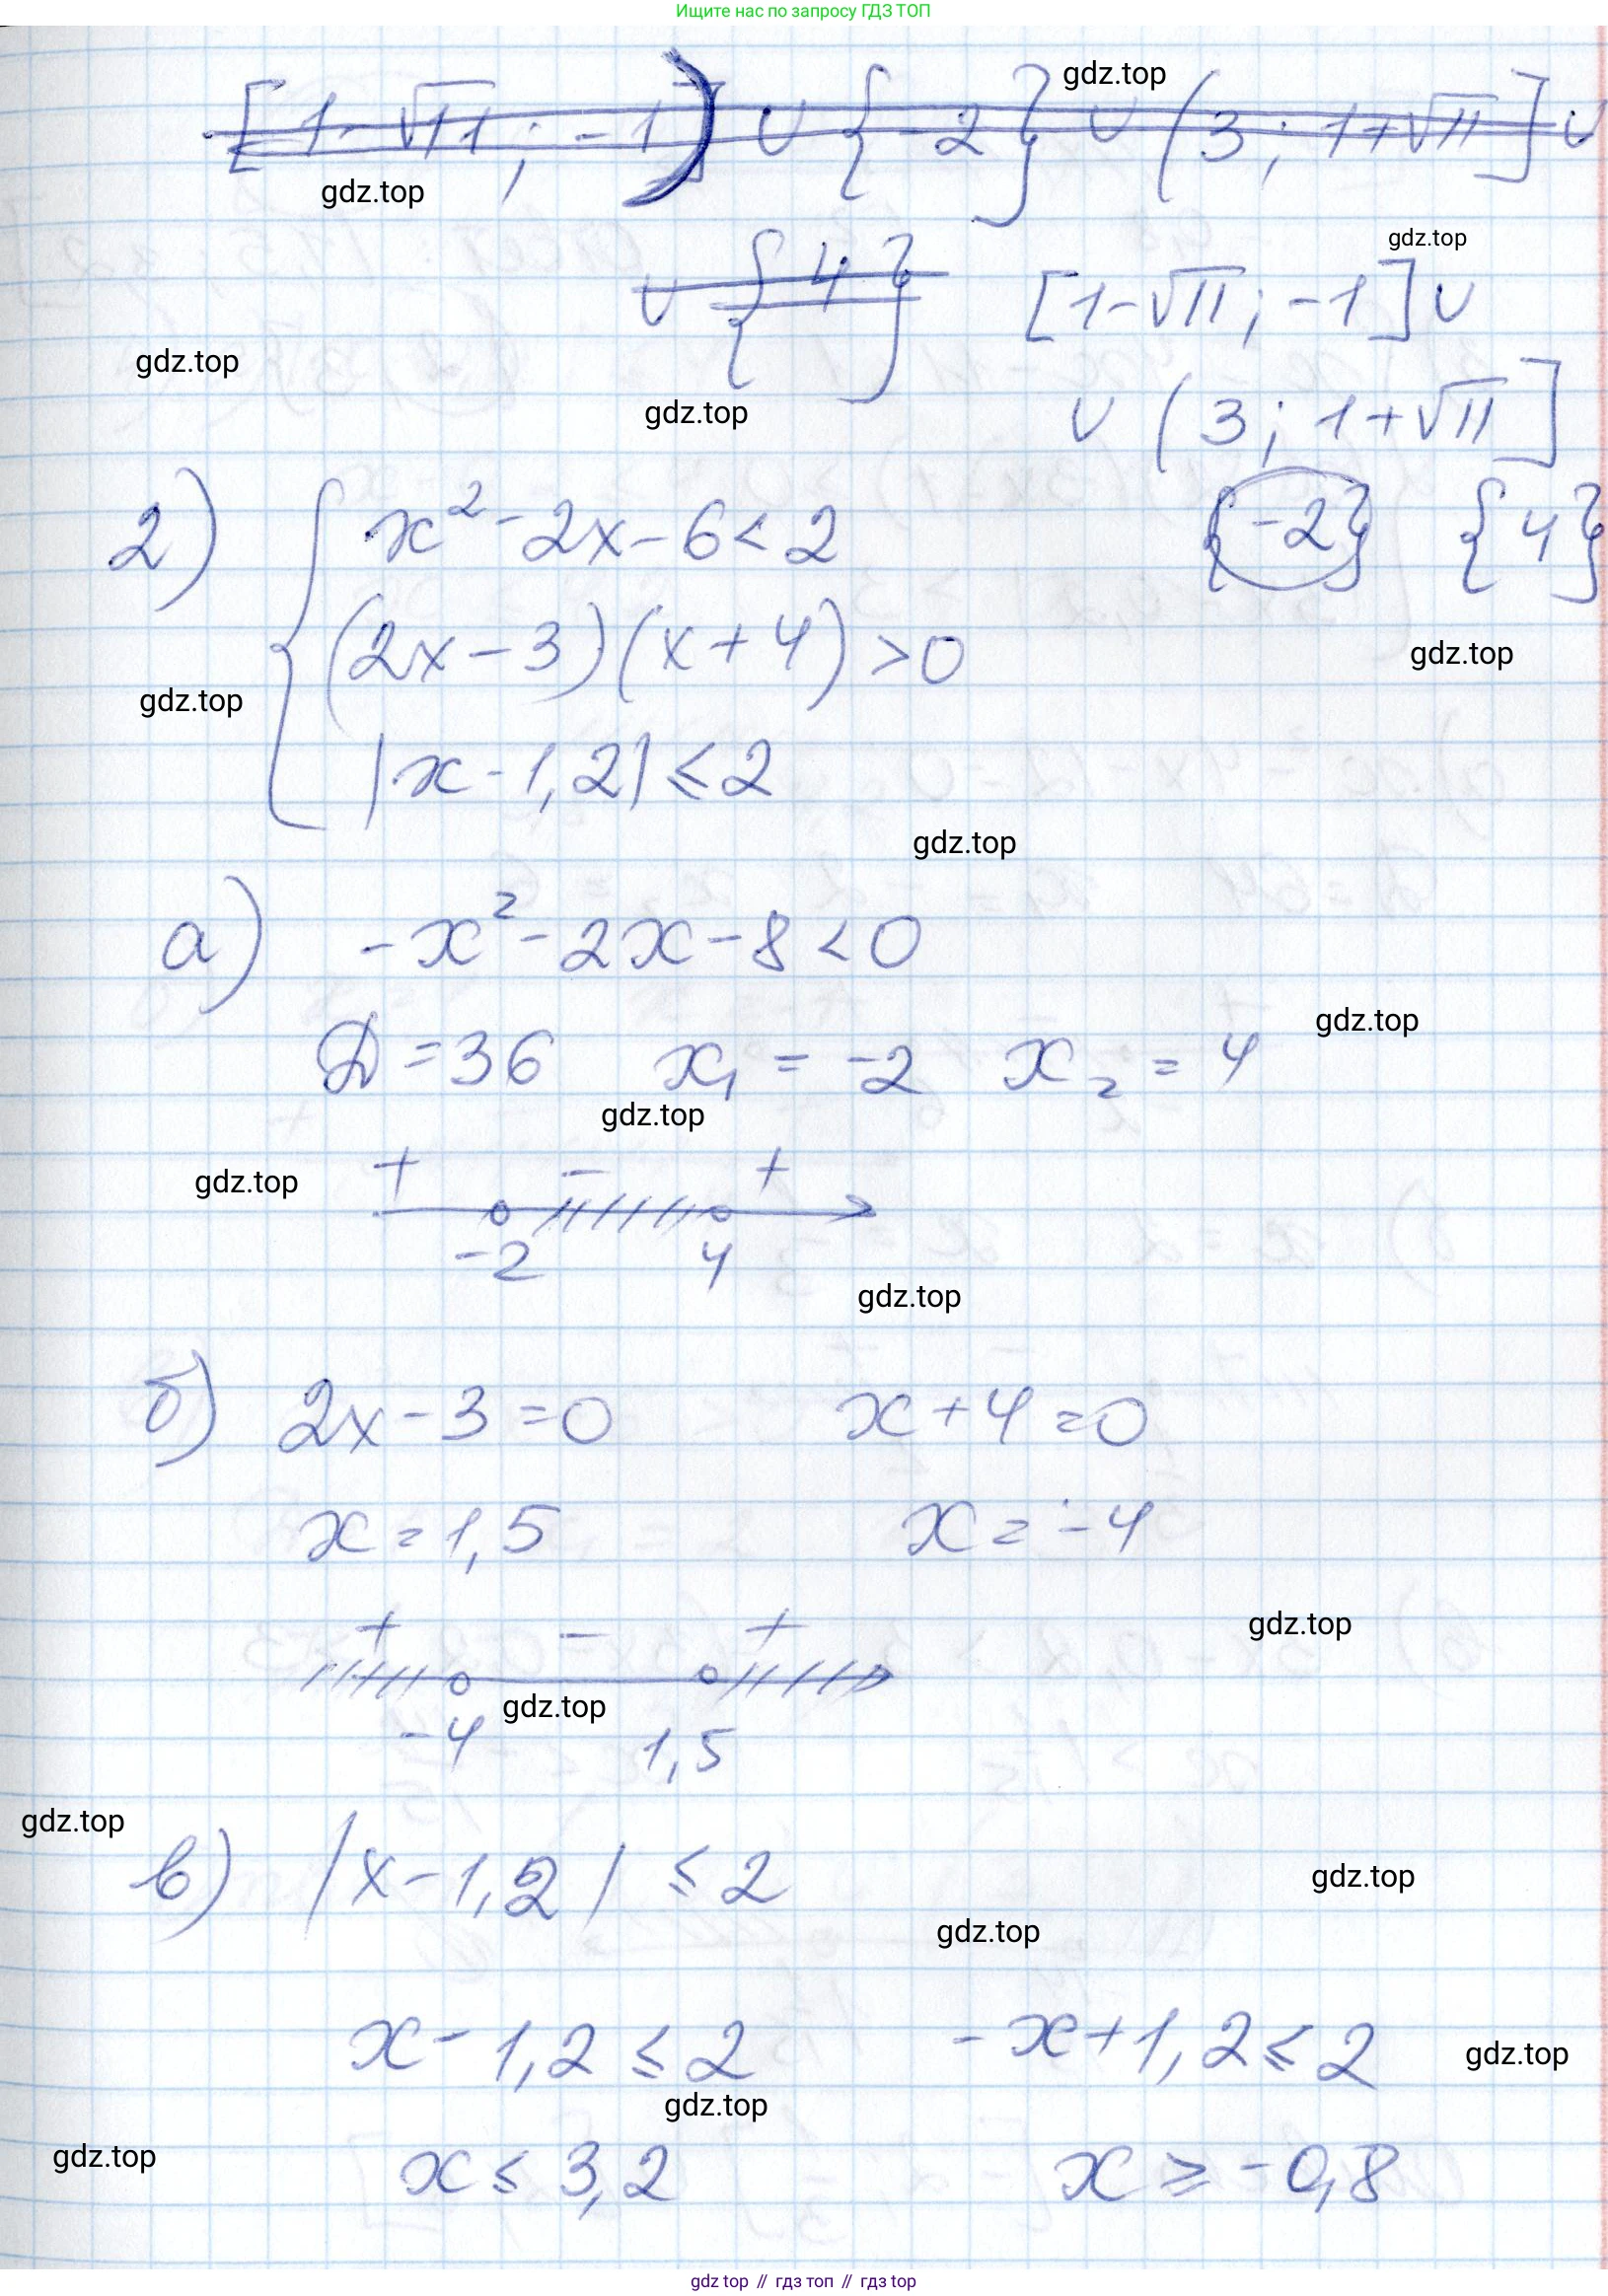 Ищите нас по запросу ГДЗ ТОП
[1-√11; -1) ∪ {-2} ∪ (3; 1+√11] ∪
gdz.top
gdz.top
∪ {4} [1-√11; -1] ∪
gdz.top
gdz.top
gdz.top
∪ (3; 1+√11]
{-2} {4}
2) { x²-2x-6<2
(2x-3)(x+4)>0
gdz.top
gdz.top
|x-1,2|≤2
gdz.top
а) -x²-2x-8<0
gdz.top
D=36 x₁=-2 x₂=4
gdz.top
gdz.top
+ - +
-2 4
gdz.top
б) 2x-3=0 x+4=0
x=1,5 x=-4
+ - +
gdz.top
gdz.top
-4 1,5
gdz.top
в) |x-1,2|≤2
gdz.top
gdz.top
x-1,2≤2 -x+1,2≤2
gdz.top
gdz.top
gdz.top
x≤3,2 x≥-0,8
gdz top // гдз топ // gdz top